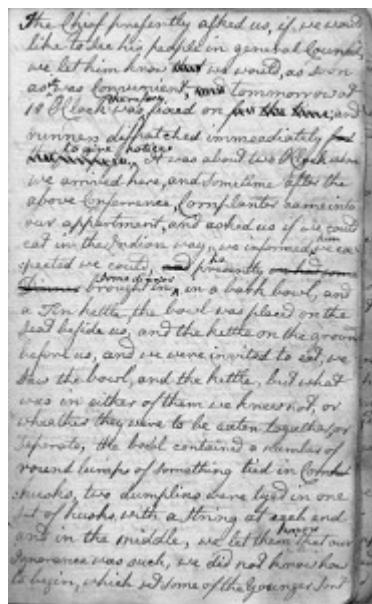 The Chief presently asked us, if we would
like to see his people in general Council,
we let him know we would, as soon
as it was Convenient, and tommorrow at
10 OClock was therefore fixed on for the time; and
runners dispatched immediately
to give notice. It was about two OClock when
we arrived here, and sometime after the
above Conference, Cornplanter came into
our appartment, and asked us if we could
eat in the Indian way, we informed him we ex-
spected we could, and presently
brought in some dinner in a bark bowl, and
a Tin kettle, the bowl was placed on the
seat beside us, and the kettle on the ground
before us, and we were invited to eat, we
saw the bowl, and the kettle, but what
was in either of them we knew not, or
wheather they were to be eaten together, or
seperate, the bowl contained a number of
round lumps of something tied in Corn
husks, two dumplins were tyed in one
set of husks, with a string at each end
and in the middle, we let them know that our
Ignorance was such, we did not know how
to begin, which set some of the Younger Sort